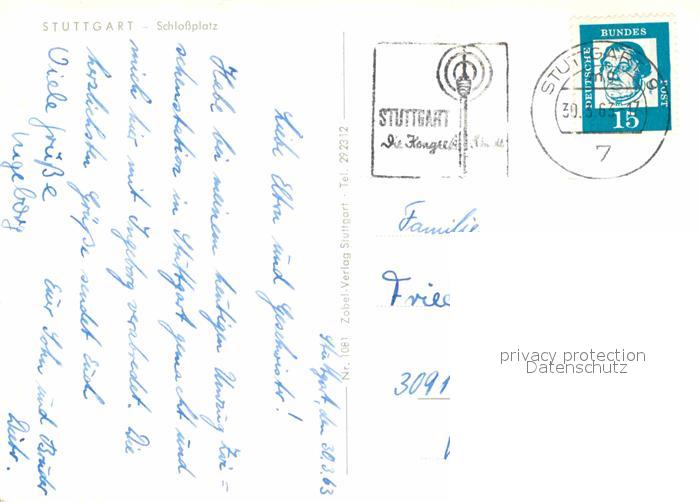 STUTTGART – Schloßplatz
Stuttgart, den 30.3.63
Liebe Eltern und Geschwister!
Habe bei meinem heutigen Umzug Zwi=
schenstation in Stuttgart gemacht und
mich hier mit Ingeborg verabredet. Die
herzlichsten Grüße sendet Euch
Euer Sohn und Bruder
Dieter.
Viele Grüße
Ingeborg
Nr. 1081 Zobel-Verlag Stuttgart · Tel. 292312
STUTTGART
Die Kongreß
STUTTGART 9
30.3.63
7
DEUTSCHE
BUNDES
POST
15
Familie
3091
privacy protection
Datenschutz